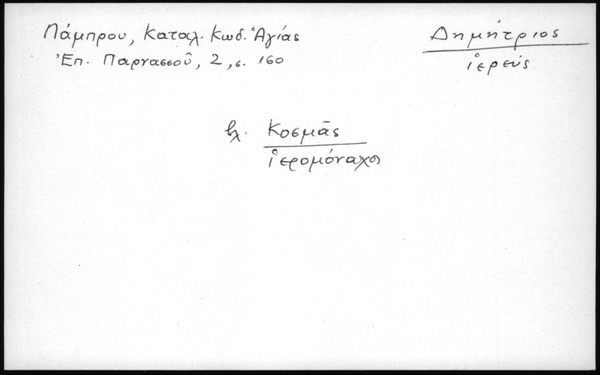 Λάμπρου, Καταλ. Κωδ. Ἁγίας
Ἐπ. Παρνασσοῦ, 2, σ. 160
Δημήτριος
ἱερεύς
βλ. Κοσμᾶς
ἱερομόναχος